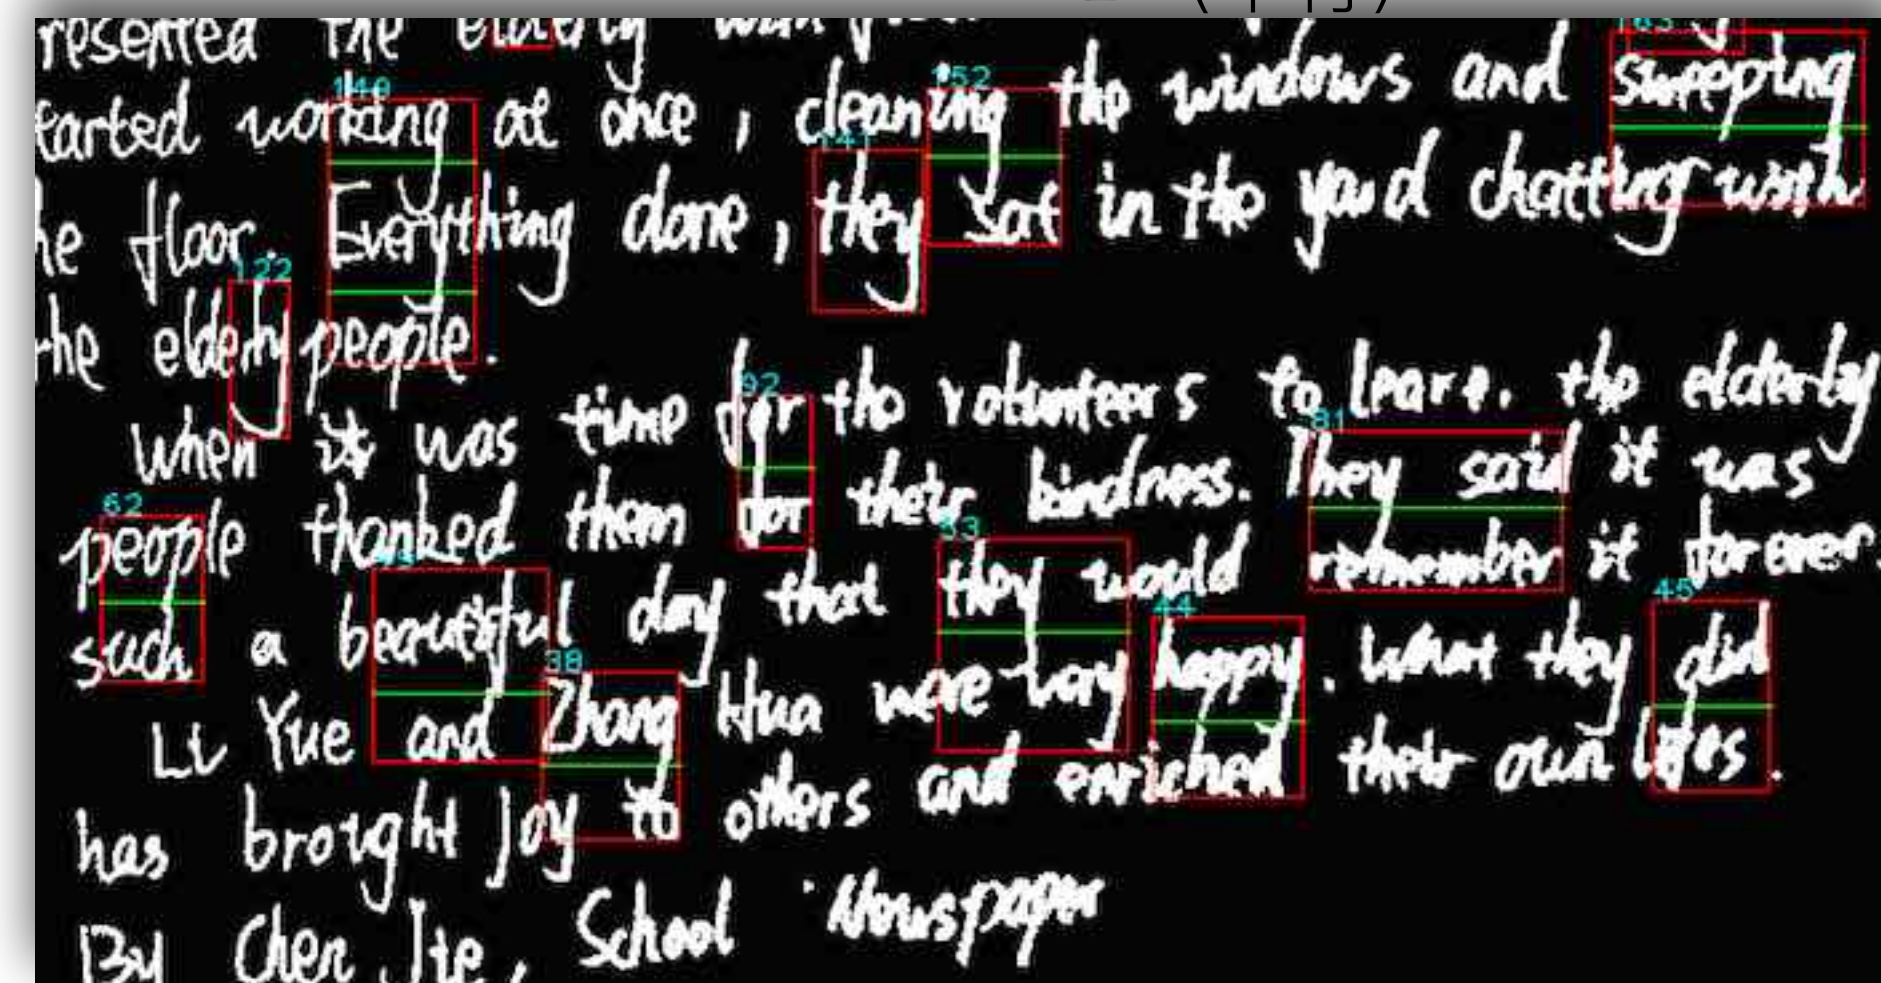 resented the elderly with
started working at once, cleaning the windows and sweeping
the floor. Everything done, they sat in the yard chatting with
the elderly people.
When it was time for the volunteers to leave, the elderly
people thanked them for their kindness. They said it was
such a beautiful day that they would remember it forever.
Li Yue and Zhang Hua were very happy. What they did
has brought joy to others and enriched their own lifes.
By Chen Jie, School Newspaper
140
152
163
141
122
92
81
62
53
44
45
38